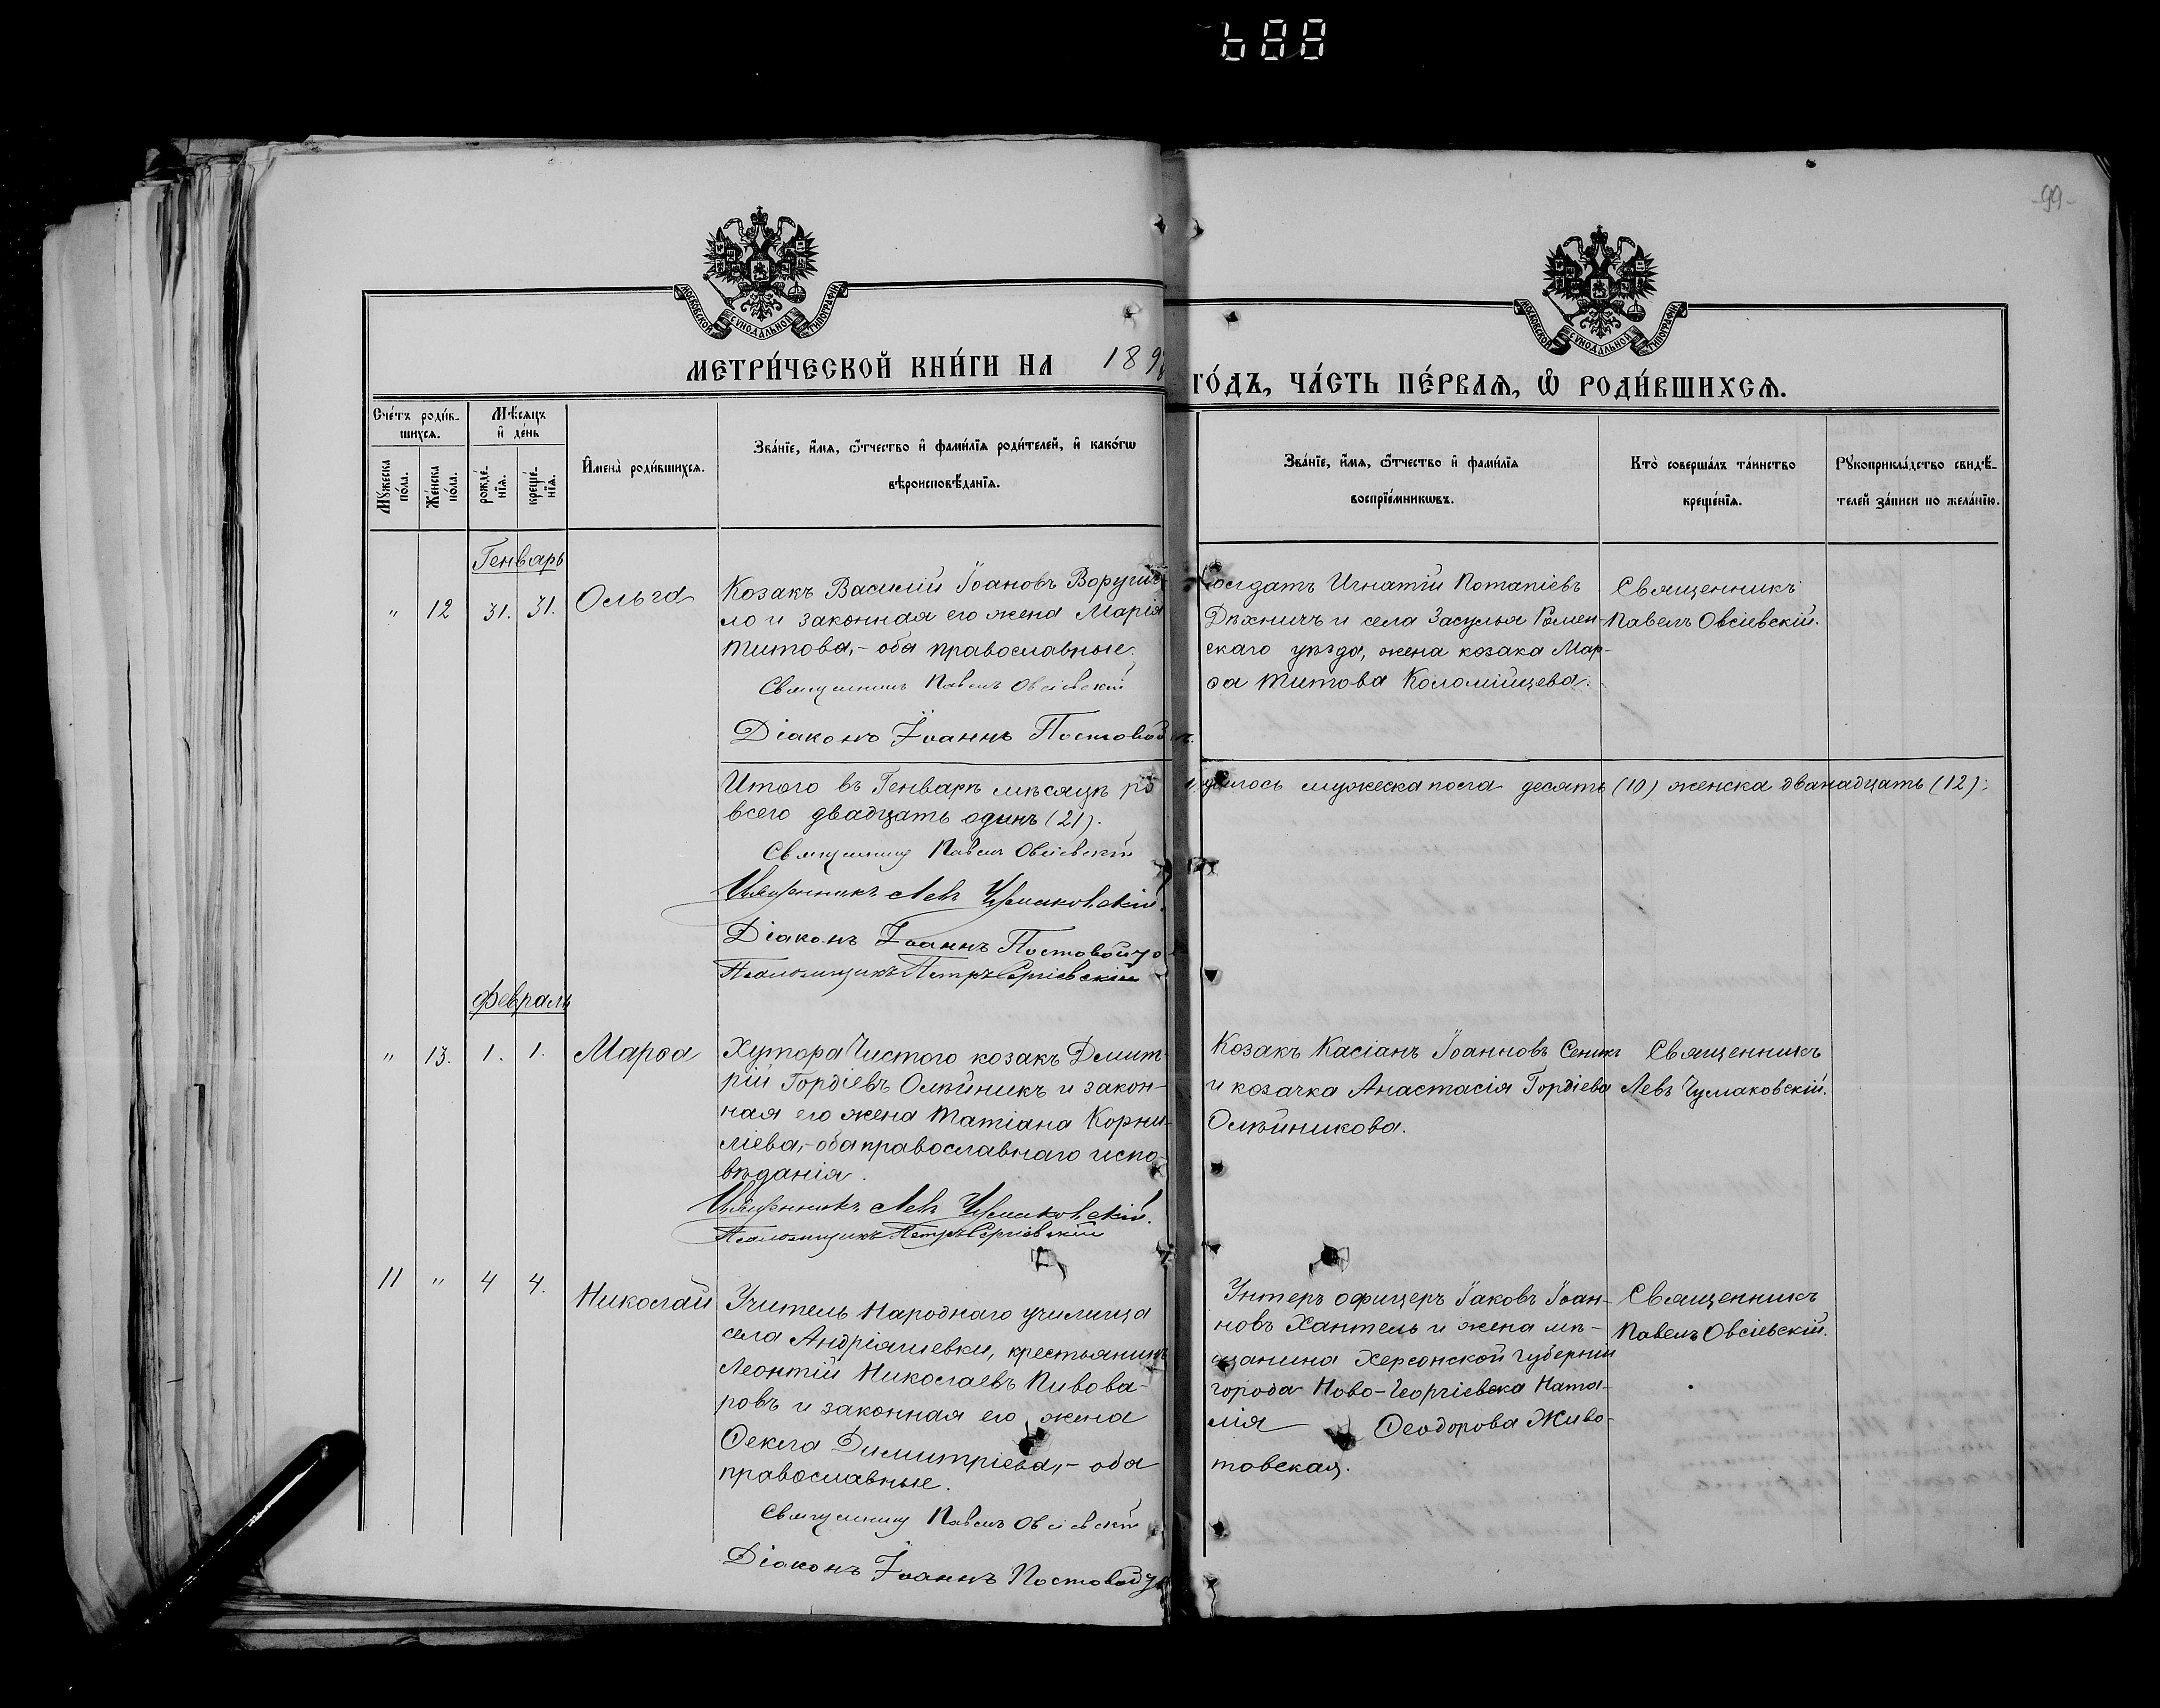 688
-99-
МОСКОВСКОЙ СУНОДАЛЬНОЙ ТИПОГРАФІИ
МОСКОВСКОЙ СУНОДАЛЬНОЙ ТИПОГРАФІИ
МЕТРИ́ЧЕСКОЙ КНИ́ГИ НА 189
ГО́ДЪ, ЧА́СТЬ ПЕ́РВАѦ, Ѡ РОДИ́ВШИХСѦ.
Сче́тъ роди́в-
шихсѧ.
Мꙋ́жеска по́ла.
Же́нска по́ла.
Мѣ́сѧцъ и҆ де́нь
рожде́-нїѧ.
креще́-нїѧ.
И҆мена̀ роди́вшихсѧ.
Зва́нїе, и҆́мѧ, ѻ҆́тчество и҆ фами́лїѧ роди́телей, и҆ како́гѡ
вѣроисповѣ́данїѧ.
Зва́нїе, и҆́мѧ, ѻ҆́тчество и҆ фами́лїѧ
воспрїе́мникѡвъ.
Кто̀ соверша́лъ та́инство
креще́нїѧ.
Рꙋкоприкла́дство свидѣ́-
телей за́писи по жела́нїю.
Генварь
" 12 31. 31. Ольга
Козакъ Василій Іоановъ
ло и законная его жена Марія
Титова,- оба православные.
Священникъ Павелъ Овсіевскій
Діаконъ Іоаннъ
Солдатъ Игнатій Потапіевъ
Дѣхничъ и села Засулья Ромен-
скаго уѣзда, жена козака Мар-
ѳа Титова Коломійцева.
Священникъ
Павелъ Овсіевскій.
Итого въ Генварѣ мѣсяцѣ родилось мужеска пола десять (10) женска двѣнадцать (12):
всего двадцать одинъ (21).
Священникъ Павелъ Овсіевскій
Священникъ Левъ Чумаковскій.
Діаконъ Іоаннъ
Псаломщикъ Петръ Сергіевскій
Февраль
" 13. 1. 1. Марѳа
Хутора Чистого козакъ Димит-
рій Гордіевъ Олѣйникъ и закон-
ная его жена Татіана Корни-
ліева,- оба православнаго испо-
вѣданія.
Священникъ Левъ Чумаковскій.
Псаломщикъ Петръ Сергіевскій
Козакъ Касіанъ Іоанновъ Сеникъ
и козачка Анастасія Гордіева
Олѣйникова.
Священникъ
Левъ Чумаковскій.
11 " 4 4. Николай
Учитель Народнаго училища
села Андріяшевки, крестьянинъ
Леонтій Николаевъ Пивова-
ровъ и законная его жена
Ѳекла Димитріева,- оба
православные.
Священникъ Павелъ Овсіевскій
Діаконъ Іоаннъ
Унтеръ офицеръ Іаковъ Іоан-
новъ Хантель и жена мѣ-
щанина Херсонской губерніи
города Ново-Георгіевска Ната-
лія Ѳеодорова Живо-
товская.
Священникъ
Павелъ Овсіевскій.